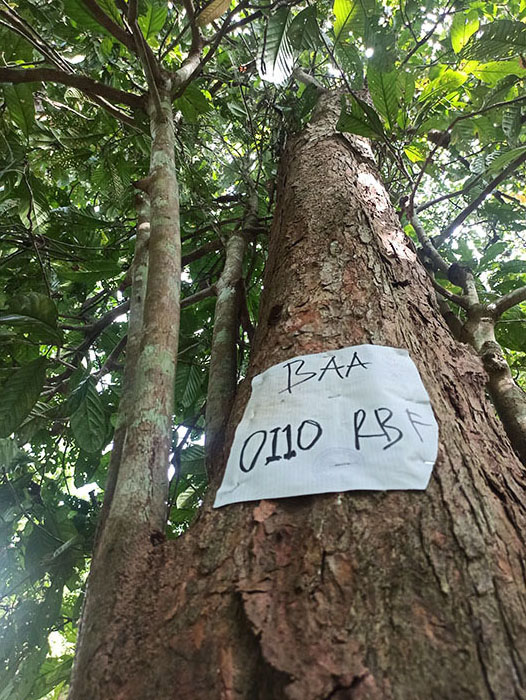 BAA
0I10 RBF